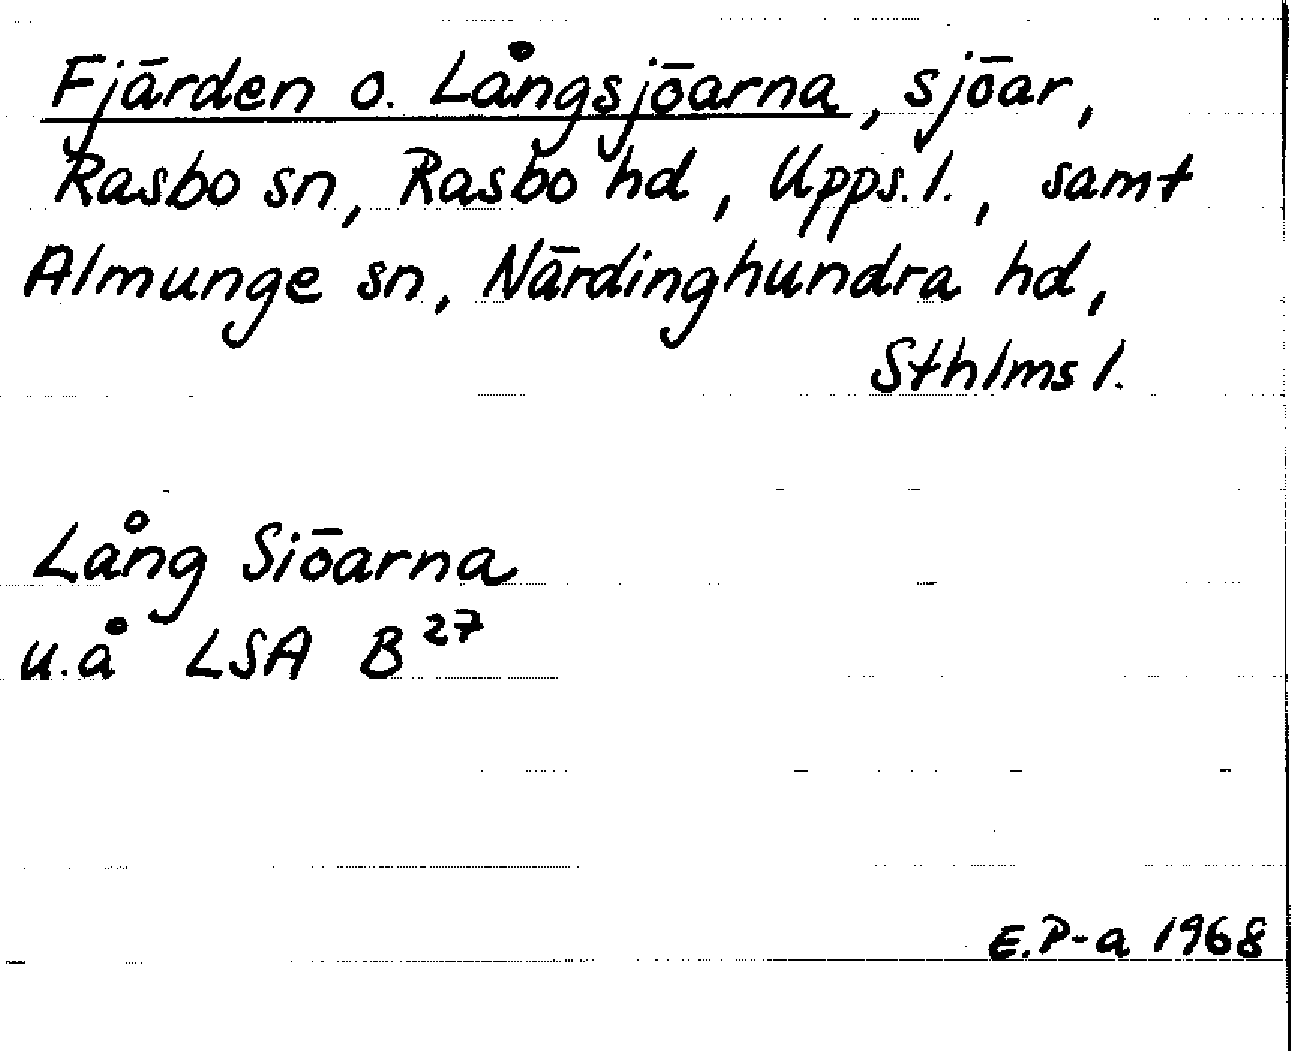 Fjärden o. Långsjöarna, sjöar,
Rasbo sn, Rasbo hd, Upps. l., samt
Almunge sn, Närdinghundra hd,
Sthlms l.
Lång Siöarna
u.å LSA B 27
E.P-a 1968